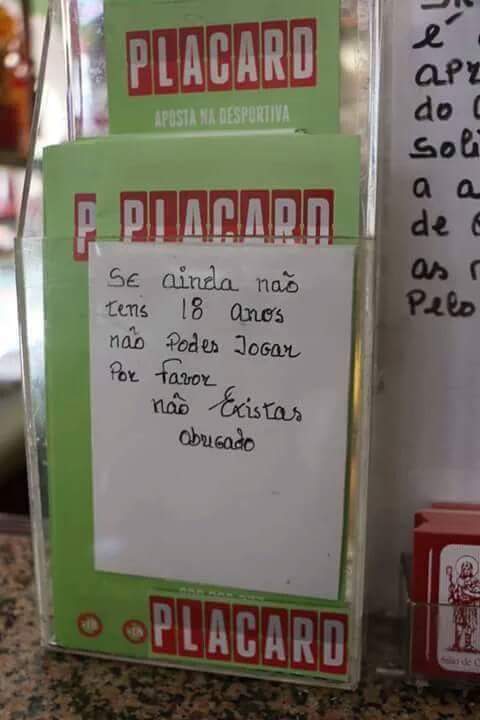 PLACARD
APOSTA NA DESPORTIVA
PLACARD
Se ainda não
tens 18 anos
não Podes Jogar
Por favor
não Existas
obrigado
PLACARD
é
apr
do
soli
a a
de
as
Pelo